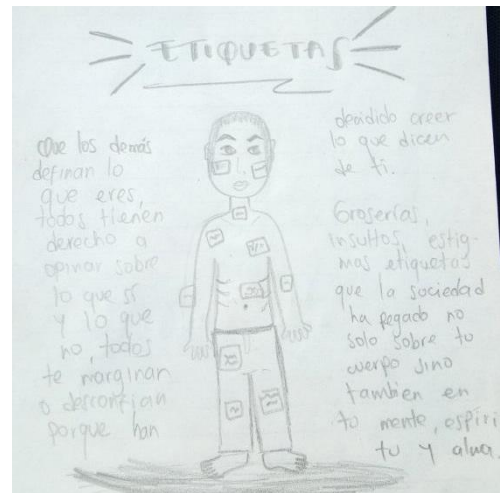 ETIQUETAS
Que los demás
definan lo
que eres,
todos tienen
derecho a
opinar sobre
lo que sí
y lo que
no, todos
te marginan
o desconfían
porque han
decidido creer
lo que dicen
de ti.
Groserías,
insultos, estig-
mas etiquetas
que la sociedad
ha pegado no
solo sobre tu
cuerpo sino
tambien en
tu mente, espíri
tu y alma.